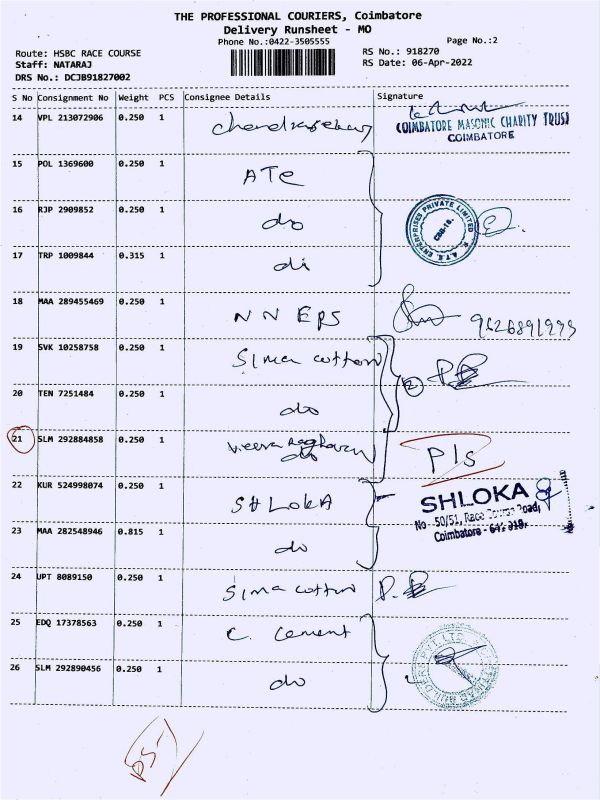 THE PROFESSIONAL COURIERS, Coimbatore
Delivery Runsheet - MO
Phone No.:0422-3505555
Page No.:2
Route: HSBC RACE COURSE
RS No.: 918270
Staff: NATARAJ
RS Date: 06-Apr-2022
DRS No.: DCJB91827002
S No Consignment No Weight PCS Consignee Details Signature
14 VPL 213072906 0.250 1
COIMBATORE MASONIC CHARITY TRUST
COIMBATORE
15 POL 1369600 0.250 1 ATC
16 RJP 2909852 0.250 1 do
A.T.E. ENTERPRISES PRIVATE LIMITED
CBE-18.
17 TRP 1009844 0.315 1 di
18 MAA 289455469 0.250 1 NN EPS
19 SVK 10258758 0.250 1 Sima cotton
20 TEN 7251484 0.250 1 do
2
21 SLM 292884858 0.250 1 Veera Raghavan
do
P/s
22 KUR 524998074 0.250 1 SHLOKA
SHLOKA
No - 50/51, Race Course Road,
Coimbatore -
23 MAA 282548946 0.815 1 do
24 UPT 8089150 0.250 1 Sima cotton
25 EDQ 17378563 0.250 1 C. Cement
26 SLM 292890456 0.250 1 do